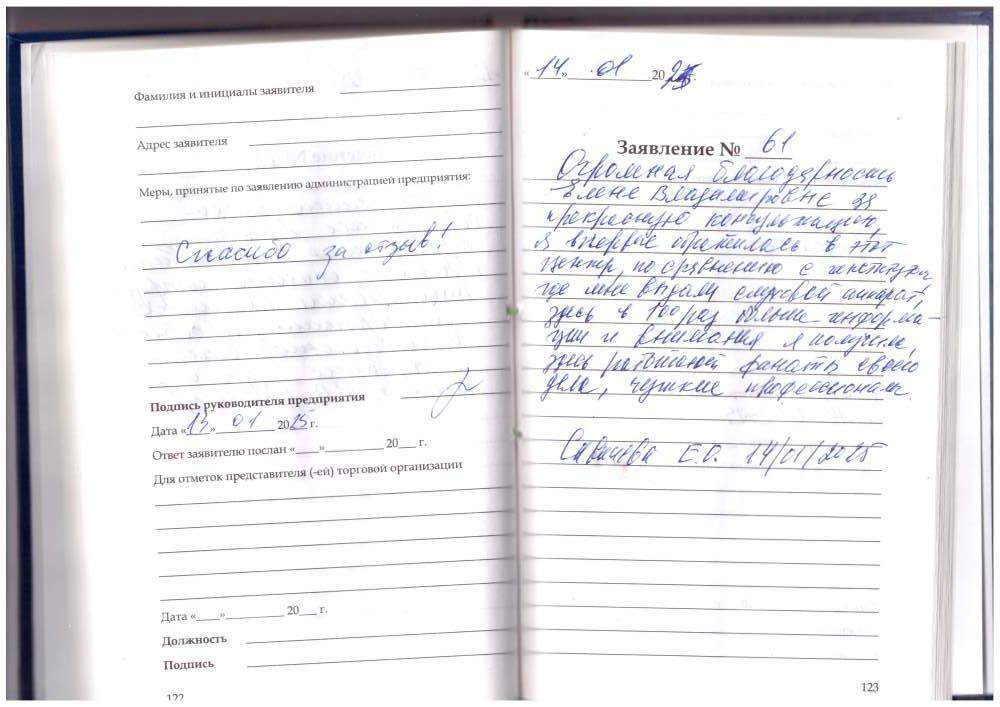 Фамилия и инициалы заявителя
Адрес заявителя
Меры, принятые по заявлению администрацией предприятия:
Спасибо за отзыв!
Подпись руководителя предприятия
Дата «13» 01 2025 г.
Ответ заявителю послан «___» ___ 20___ г.
Для отметок представителя (-ей) торговой организации
Дата «___» ___ 20___ г.
Должность
Подпись
122
«14» 01 2025 г.
Заявление № 61
Огромная благодарность
Елене Владимировне за
прекрасную консультацию,
я впервые обратилась в этот
центр, по сравнению с институтом
где мне выдали слуховой аппарат,
здесь в 100 раз больше информа-
ции и внимания я получила,
здесь работают фанаты своего
дела, чуткие профессионалы.
Е.О. 14/01/2025
123